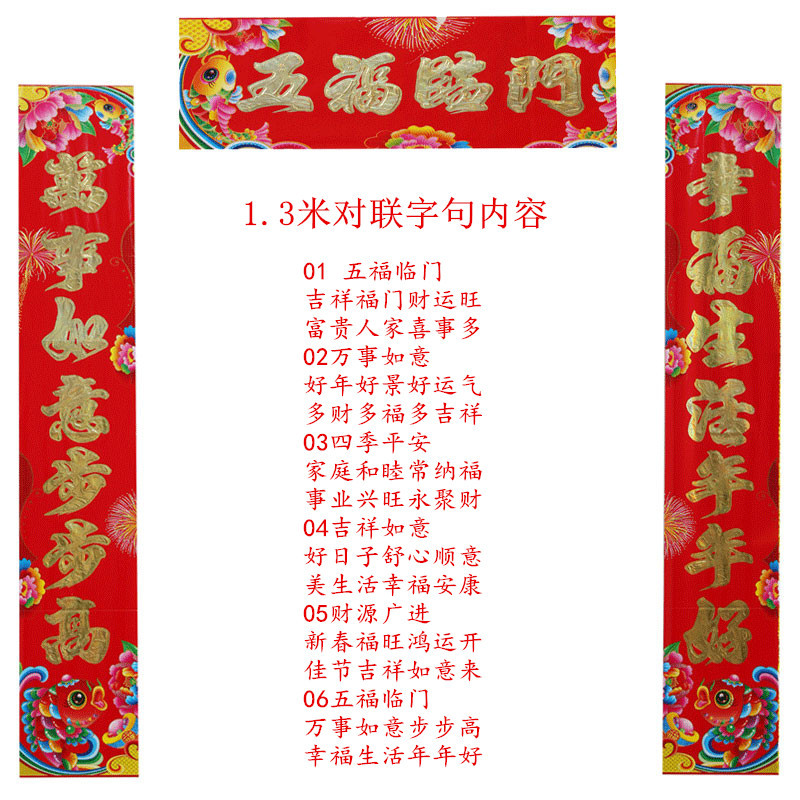 五福臨門
萬事如意步步高
幸福生活年年好
1.3米对联字句内容
01 五福临门
吉祥福门财运旺
富贵人家喜事多
02万事如意
好年好景好运气
多财多福多吉祥
03四季平安
家庭和睦常纳福
事业兴旺永聚财
04吉祥如意
好日子舒心顺意
美生活幸福安康
05财源广进
新春福旺鸿运开
佳节吉祥如意来
06五福临门
万事如意步步高
幸福生活年年好